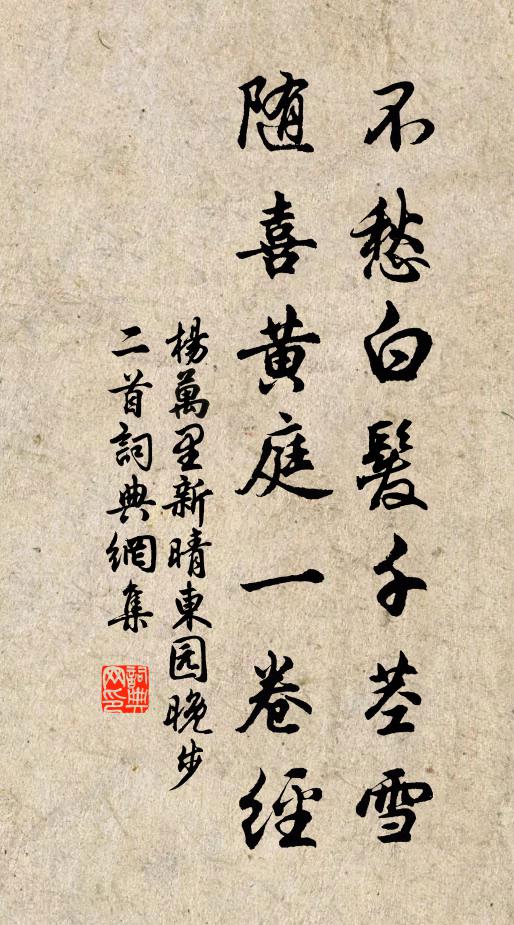 不愁白髮千莖雪
随喜黄庭一卷經
楊萬里新晴東园晚步
二首詞典網集
詞典网印